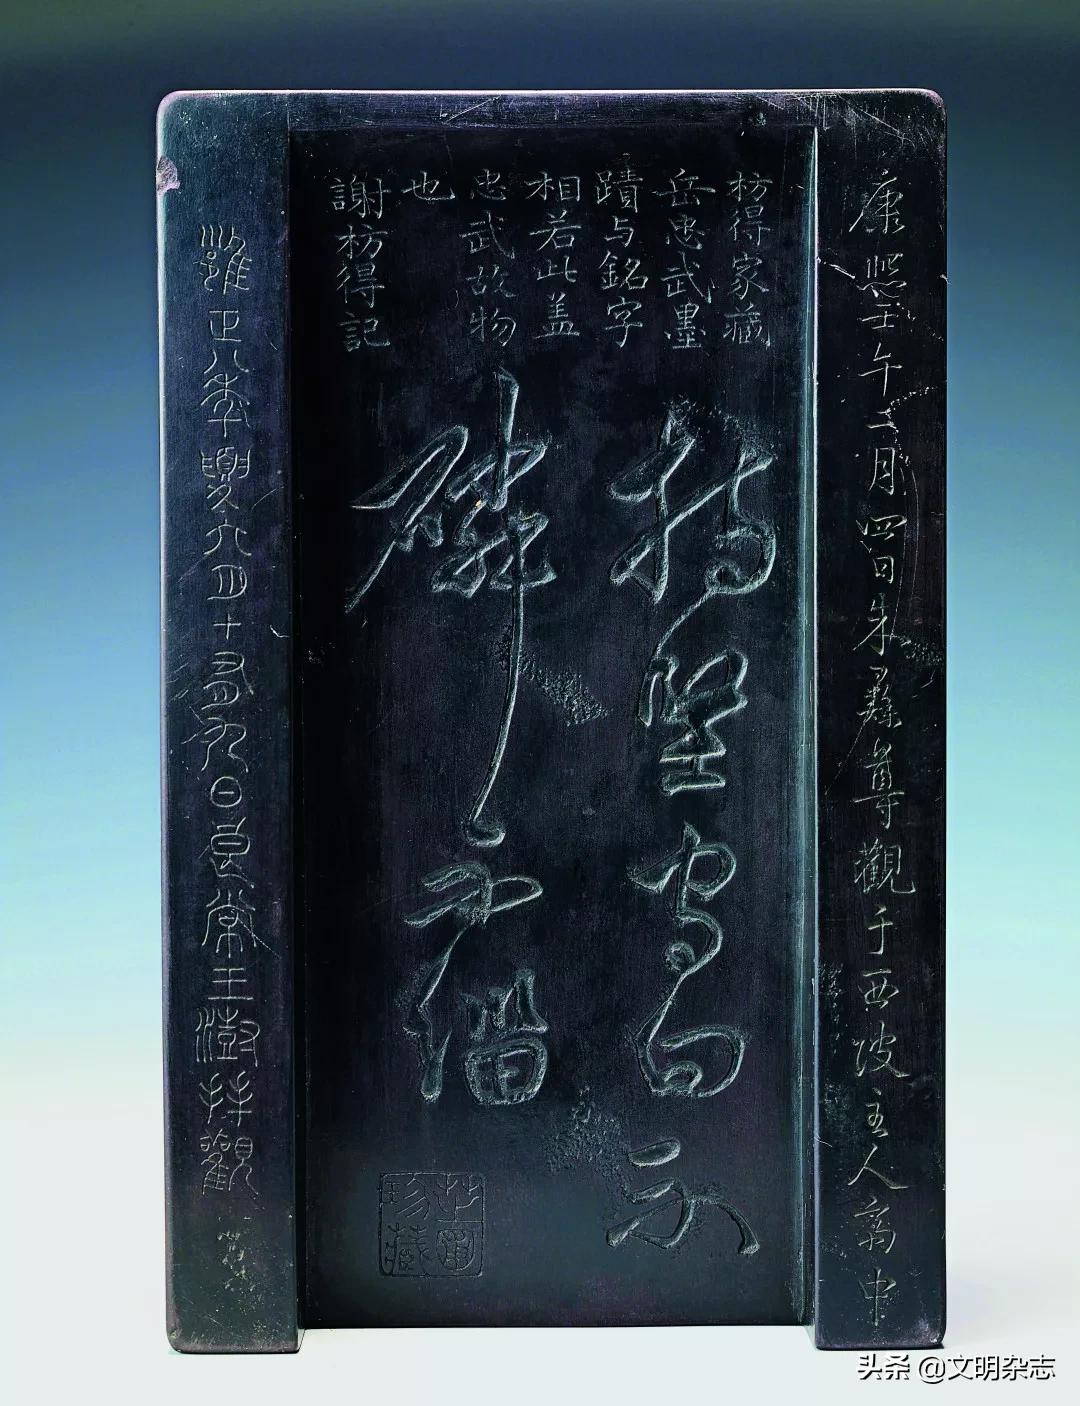 康熙壬午二月四日朱彝尊觀于西陂主人齋中
枋得家藏
岳忠武墨
蹟与銘字
相若此盖
忠武故物
也
謝枋得記
持堅守白不
磷不緇
珍藏
雍正八年夏六月十有九日良常王澍拜觀
头条 @文明杂志